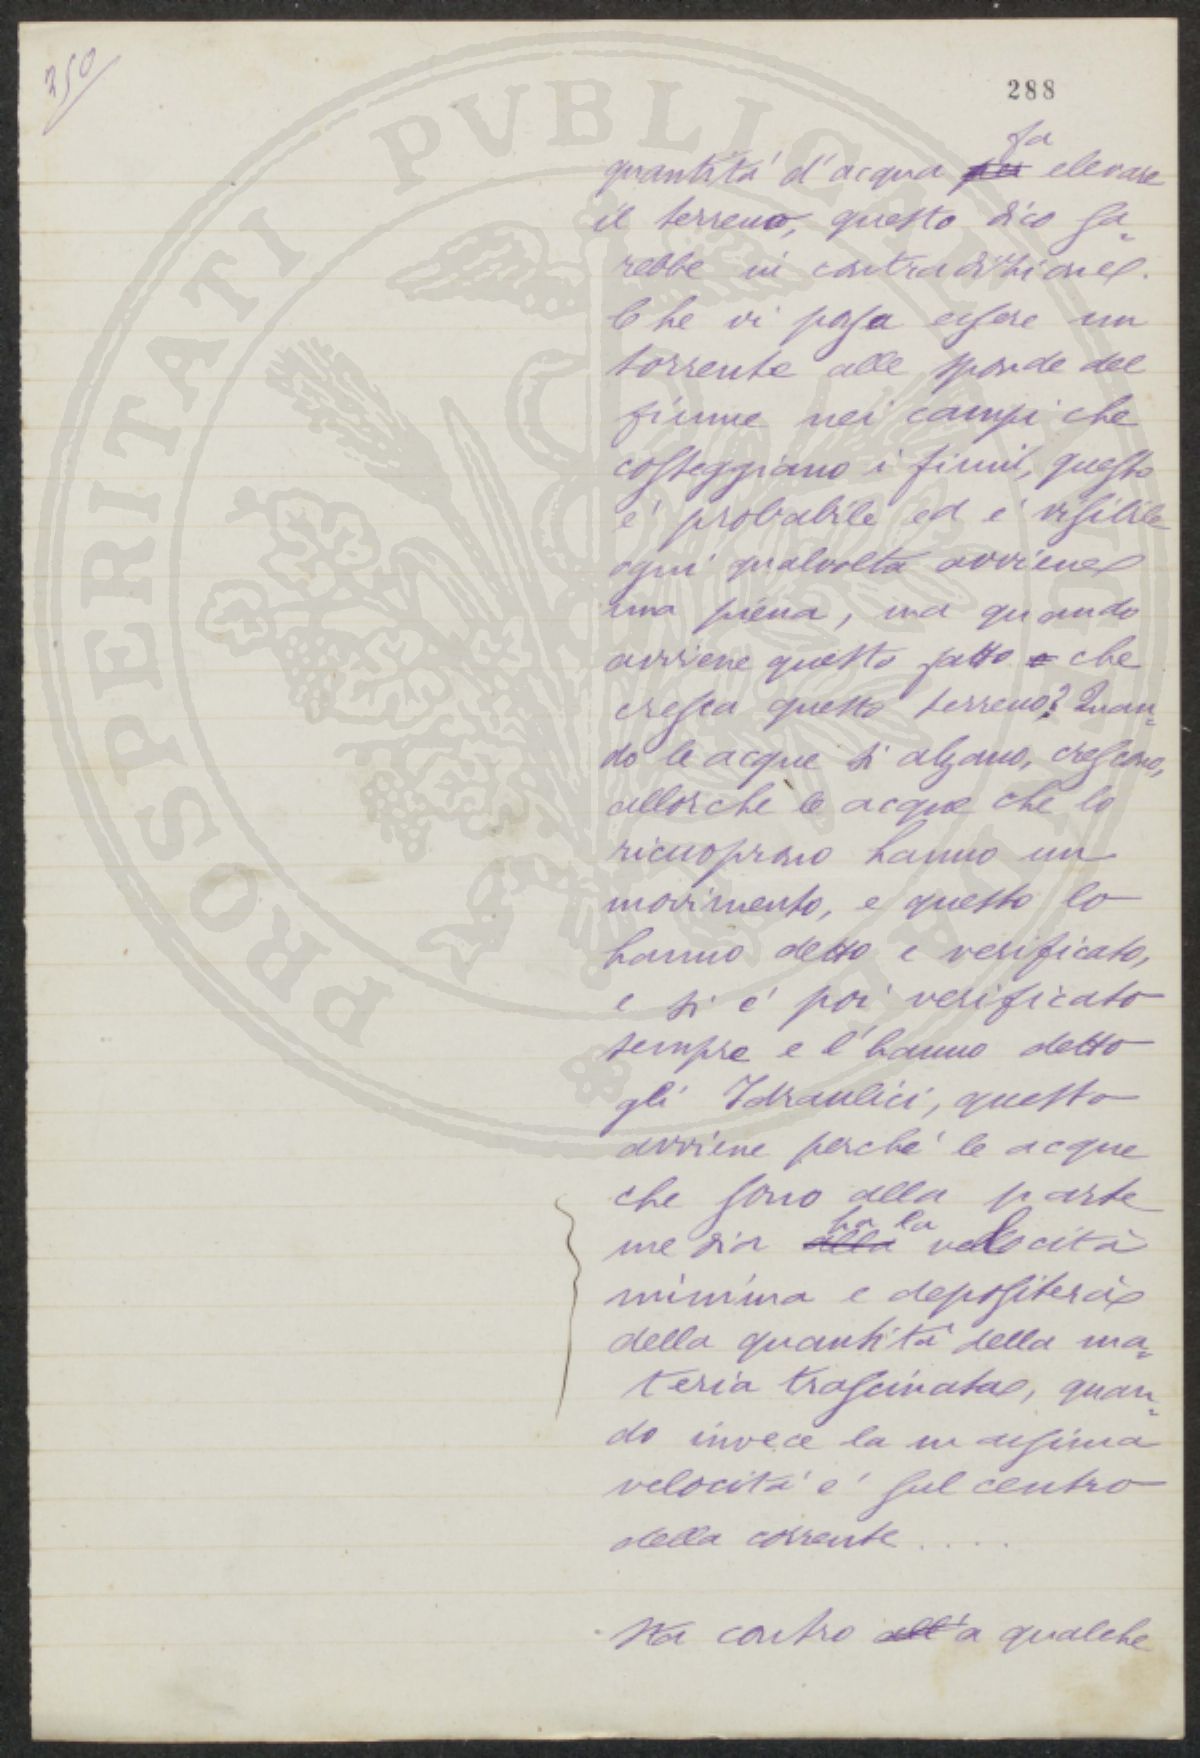 250
288
fa
quantità d'acqua per elevare
il terreno, questo dico sa=
rebbe in contradizione.
Che vi possa essere un
torrente alle sponde del
fiume nei campi che
costeggiano i fiumi, questo
é probabile ed é visibile
ogni qualvolta avviene
una piena, ma quando
avviene questo fatto e che
cresca questo terreno? Quan=
do le acque si alzano, crescono,
allorche le acque che lo
ricuoprono hanno un
movimento, e questo lo
hanno detto e verificato,
e si é poi verificato
sempre e l'hanno detto
gli Idraulici, questo
avviene perché le acque
che sono alla parte
ha la
media alla velocità
minima e depositerà
della quantità della ma=
teria trascinata, quan=
do invece la massima
velocità é sul centro
della corrente .....
Sta contro all'a qualche
PROSPERITATI PUBLICAE